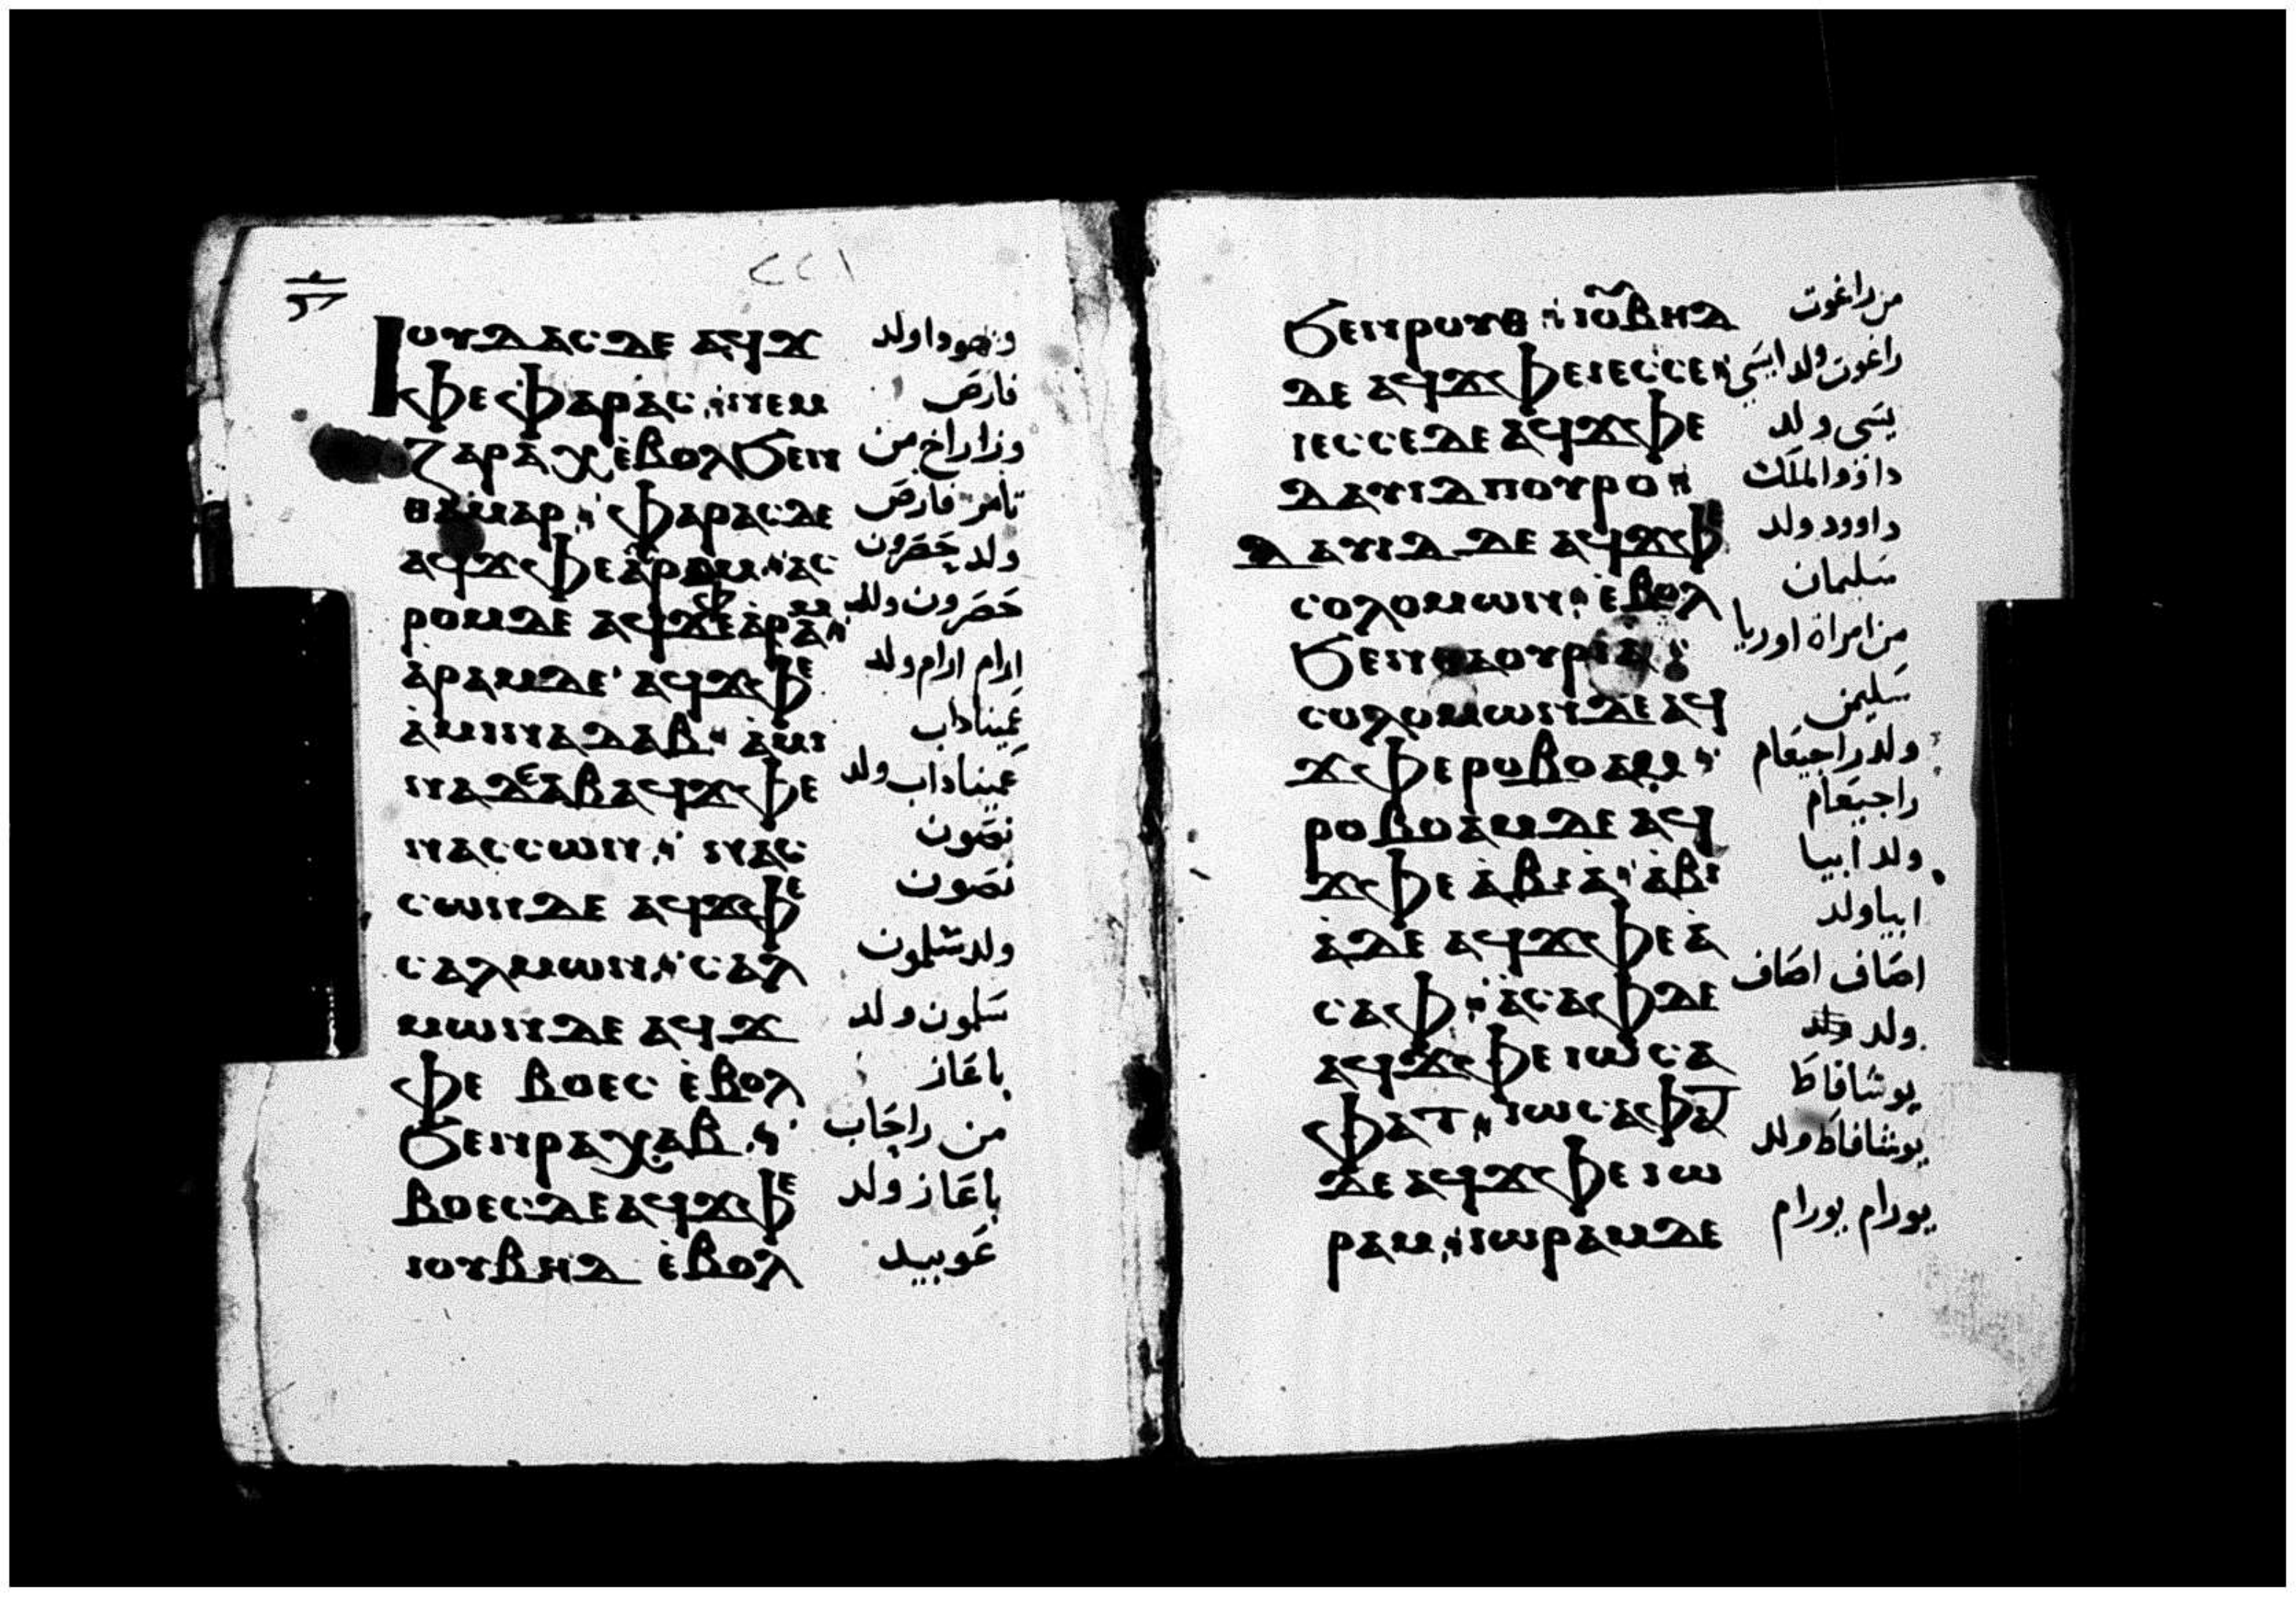 ٢٢١
Ⲓⲟⲩⲇⲁⲥ ⲇⲉ ⲁϥϫ ويهودا ولد
ⲫⲉ ⲫⲁⲣⲁⲥ ⲛⲉⲙ فارص
ⲍⲁⲣⲁ ⲭ ⲉ̀ⲃⲟⲗ ϧⲉⲛ وزاراخ من
ⲑⲁⲙⲁⲣ ⲫⲁⲣⲁⲥ ⲇⲉ تامر فارص
ⲁϥϫⲫⲉ ⲁ̀ⲣⲱⲙ ⲁⲥ ولد حصرون
ⲣⲟⲙ ⲇⲉ ⲁϥϫⲫⲉ ⲁ̀ⲣⲁⲙ حصرون ولد
ⲁ̀ⲣⲁⲙ ⲇⲉ ⲁϥϫⲫⲉ ارام ارام ولد
ⲁ̀ⲙⲓⲛⲁⲇⲁⲃ ⲁ̀ⲙⲓ عميناداب
ⲛⲁⲇⲁⲃ ⲁϥϫⲫⲉ عميناداب ولد
ⲛⲁⲥⲥⲱⲛ ⲛⲁⲥ نصون
ⲥⲱⲛ ⲇⲉ ⲁϥϫⲫⲉ نصون
ⲥⲁⲗⲙⲱⲛ ⲥⲁⲗ ولد شلمون
ⲙⲱⲛ ⲇⲉ ⲁϥϫ سلمون ولد
ⲫⲉ ⲃⲟⲉⲥ ⲉ̀ⲃⲟⲗ باعاز
ϧⲉⲛ ⲣⲁⲭⲁⲃ من راحاب
ⲃⲟⲉⲥ ⲇⲉ ⲁϥϫⲫⲉ باعاز ولد
ⲓⲟⲩⲃⲏⲇ ⲉ̀ⲃⲟⲗ عوبيد
ϧⲉⲛ ⲣⲟⲩⲑ ⲓⲟⲩⲃⲏⲇ من راغوت
ⲇⲉ ⲁϥϫⲫⲉ ⲓⲉⲥⲥⲉ راغوت ولد ايسي
ⲓⲉⲥⲥⲉ ⲇⲉ ⲁϥϫⲫⲉ يسى ولد
ⲇⲁⲩⲓⲇ ⲡⲟⲩⲣⲟ داوود الملك
ⲇⲁⲩⲓⲇ ⲇⲉ ⲁϥϫⲫⲉ داوود ولد
ⲥⲟⲗⲟⲙⲱⲛ ⲉ̀ⲃⲟⲗ سليمان
ϧⲉⲛ ⲑⲁⲟⲩⲣⲓⲁ من امراة اوريا
ⲥⲟⲗⲟⲙⲱⲛ ⲇⲉ ⲁϥ سليمن
ϫⲫⲉ ⲣⲟⲃⲟⲁⲙ ولد راجيعام
ⲣⲟⲃⲟⲁⲙ ⲇⲉ ⲁϥ راجيعام
ϫⲫⲉ ⲁ̀ⲃⲓⲁ̀ ⲁ̀ⲃⲓ ولد ابيا
ⲁ̀ ⲇⲉ ⲁϥϫⲫⲉ ⲁ̀ ابيا ولد
ⲥⲁⲫ ⲁ̀ⲥⲁⲫ ⲇⲉ اصاف اصاف
ⲁϥϫⲫⲉ ⲓⲱⲥⲁ ولد
ⲫⲁⲧ ⲓⲱⲥⲁⲫⲁⲧ يوشافاط
ⲇⲉ ⲁϥϫⲫⲉ ⲓⲱ يوشافاط ولد
ⲣⲁⲙ ⲓⲱⲣⲁⲙ ⲇⲉ يورام يورام